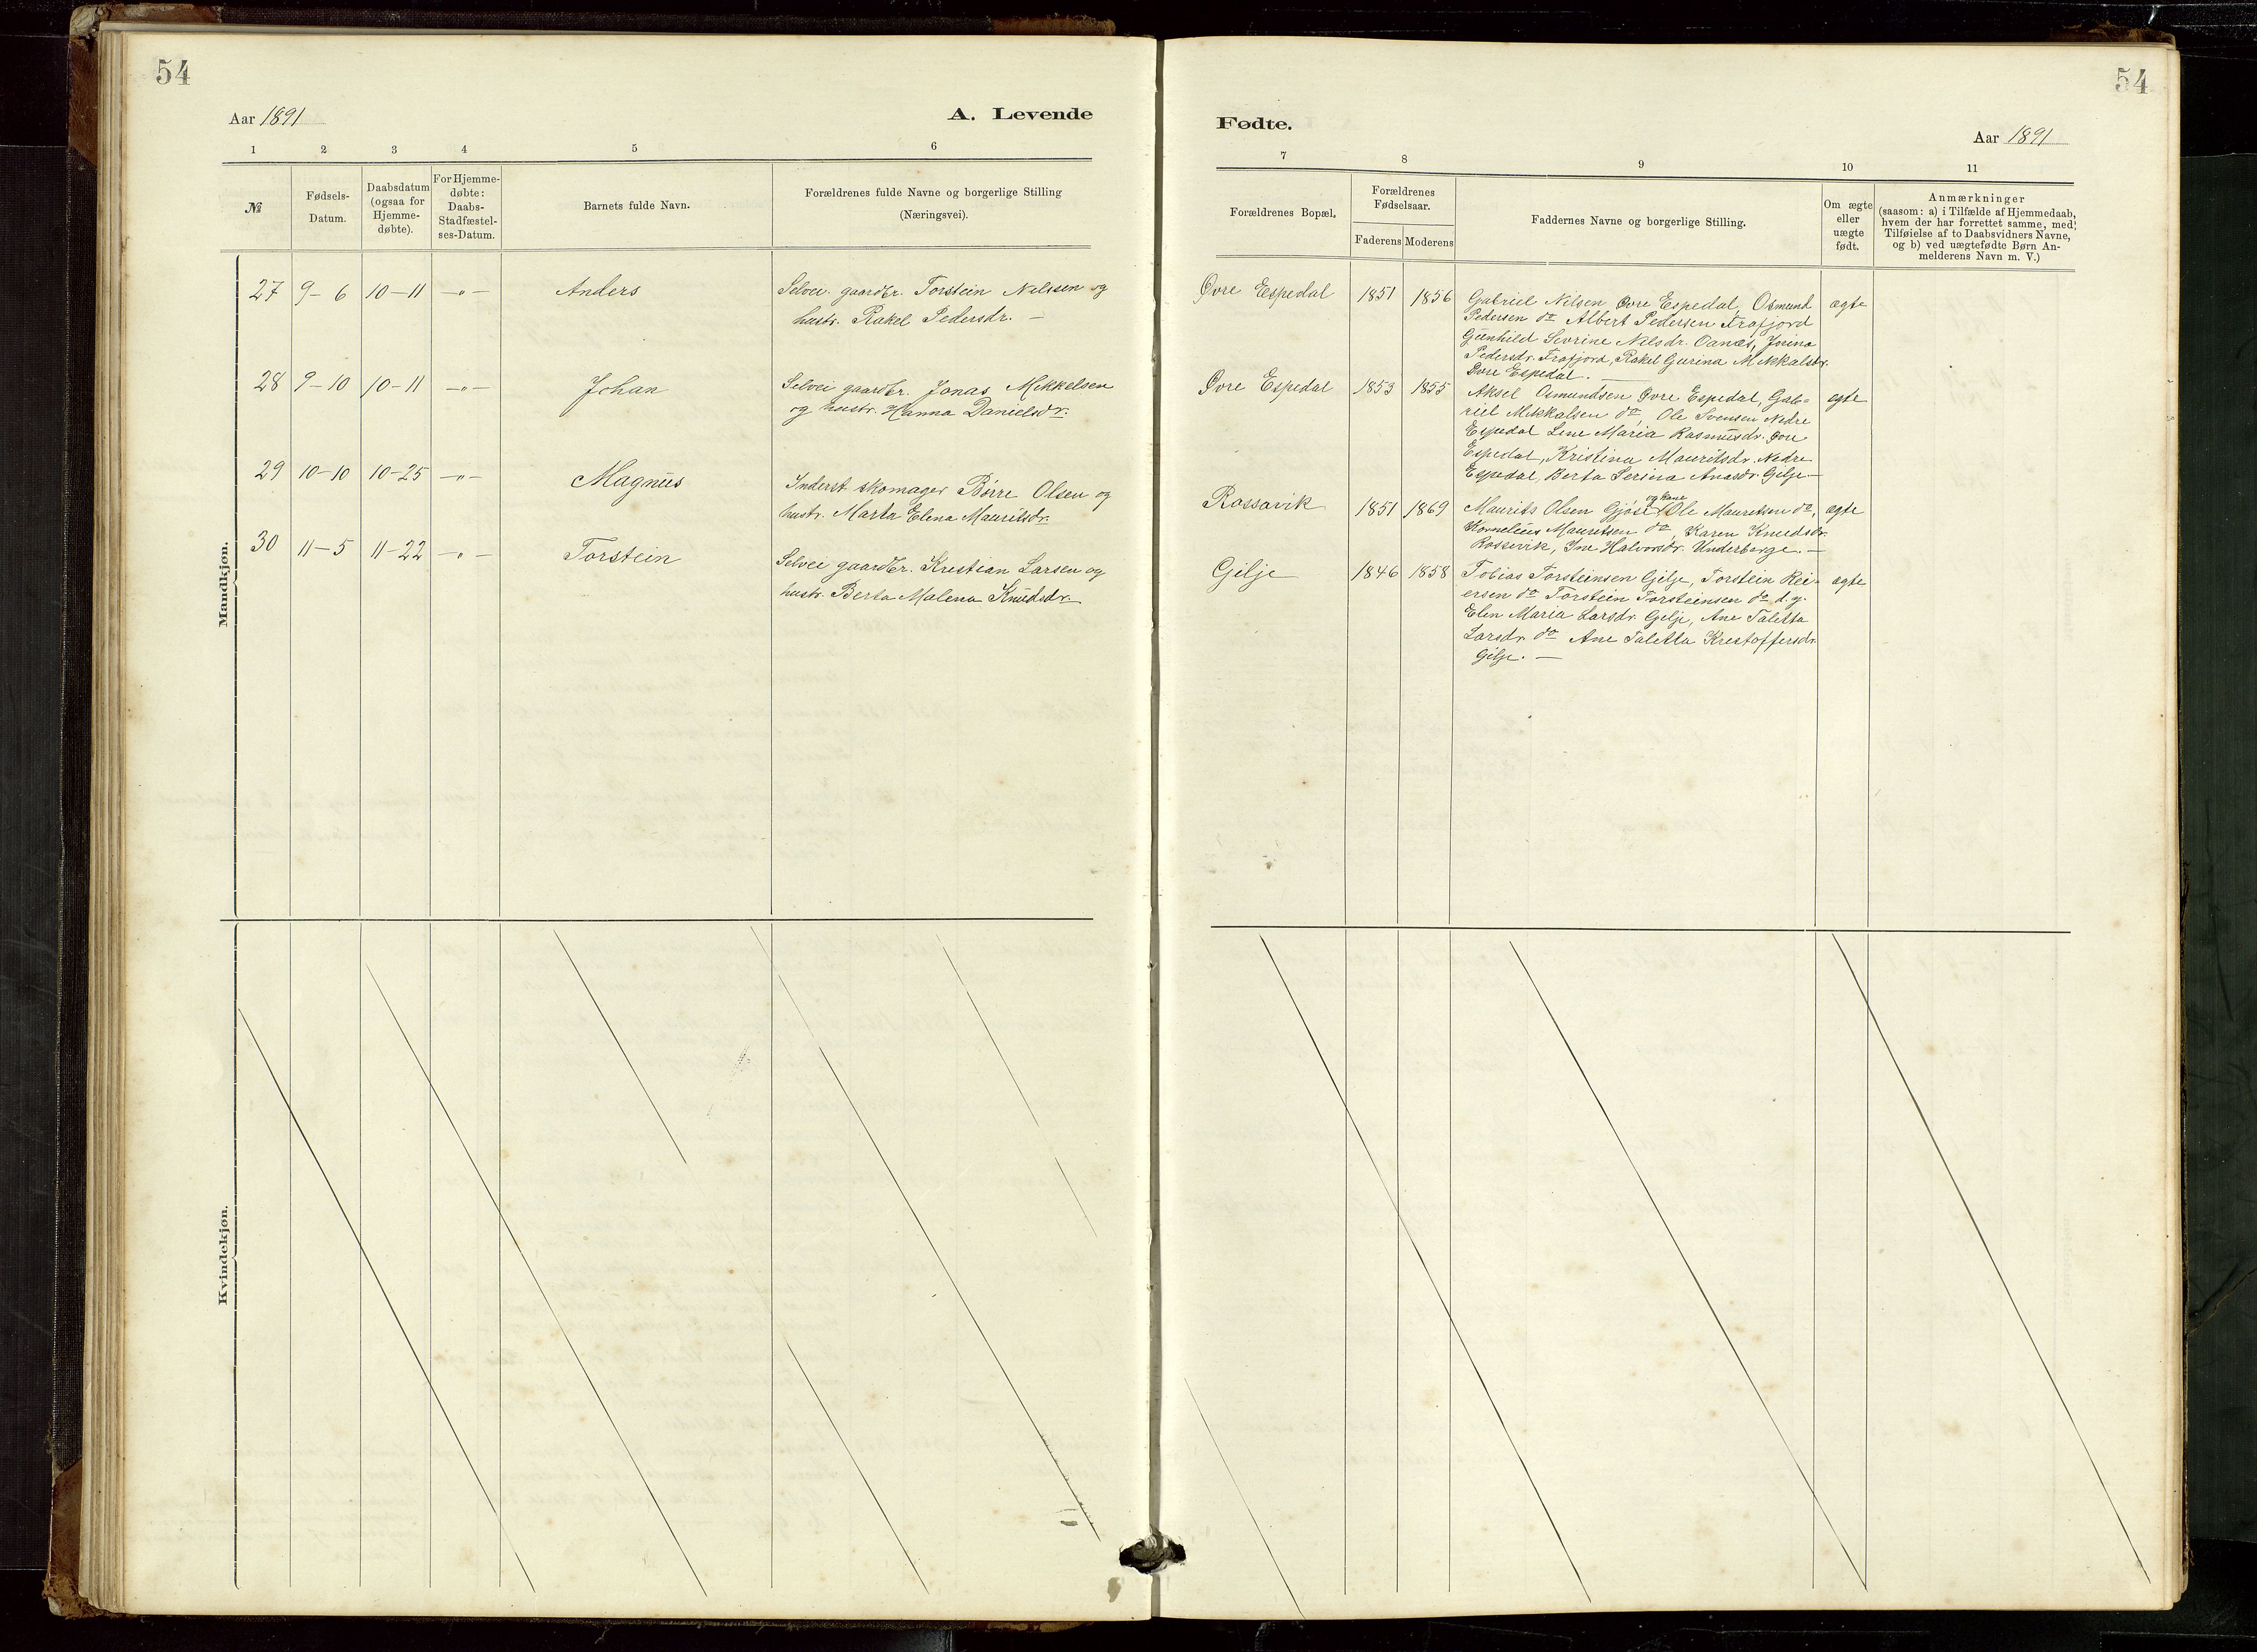 54
Aar 1891
A. Levende
1 2 3 4 5 6
№
Fødsels-
Datum.
Daabsdatum
(ogsaa for
Hjemme-
døbte).
For Hjemme-
døbte:
Daabs-
Stadfæstel-
ses-Datum.
Barnets fulde Navn.
Forældrenes fulde Navne og borgerlige Stilling
(Næringsvei).
Mandkjøn.
27 9-6 10-11 -"- Anders Selvei. gaardbr. Torstein Nilssen og
hustr. Rakel Pedersdr. -
28 9-10 10-11 -"- Johan Selvei gaardbr. Jonas Mikkelsen
og hustr. Hanna Danielsdr.
29 10-10 10-25 -"- Magnus Inderst skomager Børre Olsen og
hustr. Marta Elena Mauritsdr.
30 11-5 11-22 -"- Torstein Selvei gaardbr. Kristian Larsen og
hustr. Berta Malena Knudsdr.
Kvindekjøn.
54
Fødte.
Aar 1891
7 8 9 10 11
Forældrenes Bopæl.
Forældrenes
Fødselsaar.
Faderens Moderens
Faddernes Navne og borgerlige Stilling.
Om ægte
eller
uægte
født.
Anmærkninger
(saasom: a) i Tilfælde af Hjemmedaab,
hvem der har forrettet samme, med
Tilføielse af to Daabsvidners Navne,
og b) ved uægtefødte Børn An-
melderens Navn m. V.)
Øvre Espedal 1851 1856 Gabriel Nilsen Øvre Espedal, Osmund ægte
Pedersen do Albert Pedersen Frafjord
Gunhild Sivrine Nilsdr. Oanes, Jorina
Pedersdr. Frafjord, Rakel Gurina Mikkalsdr.
Øvre Espedal. -
Øvre Espedal 1853 1855 Aksel Osmundsen Øvre Espedal, Gab- ægte
riel Mikkalsen do, Ole Svensen Nedre
Espedal Line Maria Rasmusdr. Øvre
Espedal, Kristina Mauritsdr. Nedre
Espedal, Berta Serina Anasdr. Gilje -
Rossavik 1851 1869 Maurits Olsen Gjøse og kone Ole Mauritsen do, ægte
Kornelius Mauritsen do, Karen Knudsdr.
Rossevik, Ine Halvorsdr. Underberge. -
Gilje 1846 1858 Tobias Torsteinsen Gilje, Torstein Rei- ægte
ersen do Torstein Torsteinsen do d. y.
Elen Maria Larsdr. Gilje, Ane Taletta
Larsdr. do Ane Taletta Kristoffersdr.
Gilje. -